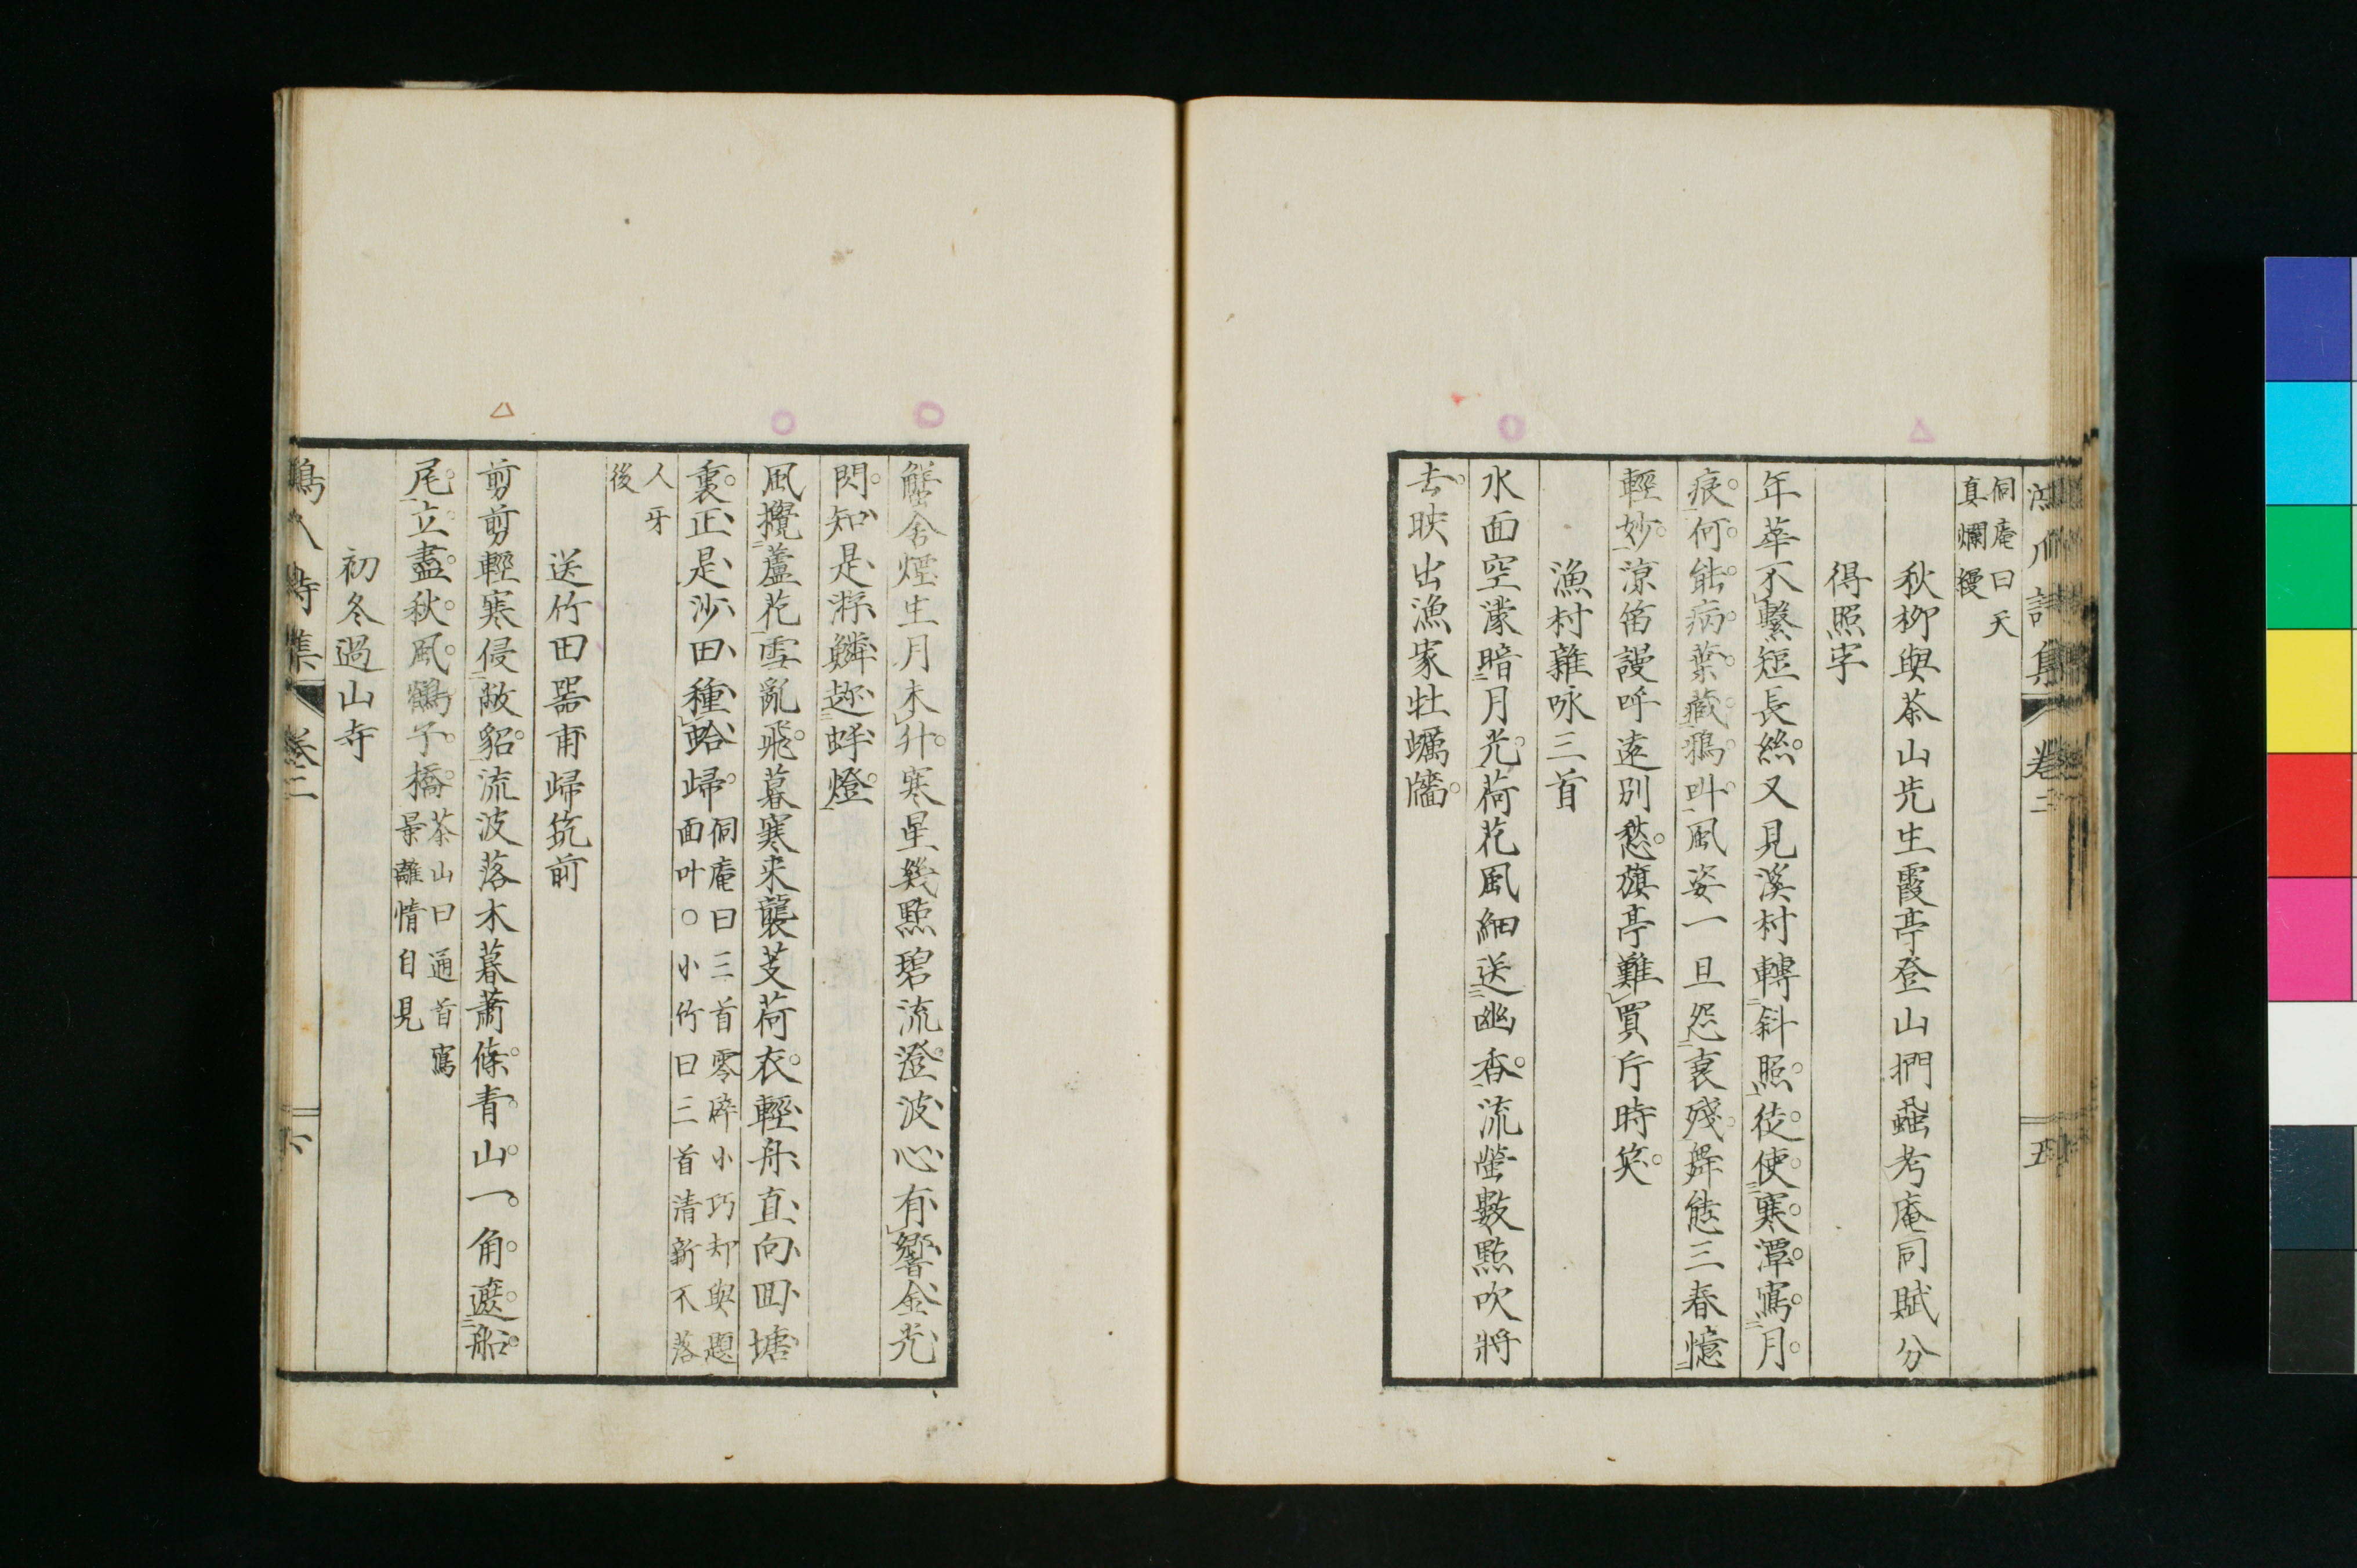 侗庵曰天
真爛縵
秋柳與茶山先生霞亭登山捫蝨考庵同賦分
得照字
年華不繫短長絲又見溪村轉斜照徒使寒潭寫月
痕何能病葉藏鴉叫風姿一旦怨衰殘舞態三春憶
輕妙涼笛謾呼遠別愁旗亭難買斤時笑
漁村雜咏三首
水面空濛暗月光荷花風細送幽香流螢數點吹將
去映出漁家牡蠣牆
蟹舍煙生月未升寒星幾點碧流澄波心有響金光
閃知是游鱗趂蚌燈
風攪蘆花雪亂飛暮寒来襲芰荷衣輕舟直向囬塘
裏正是沙田種蛤歸
侗庵曰三首零碎小巧却與題
面叶○小竹曰三首清新不落
人牙
後
送竹田器甫歸筑前
剪剪輕寒侵敝貂流波落木暮蕭條青山一角遮船
尾立盡秋風鶴子橋
茶山曰通首寫
景離情自見
初冬過山寺
卷三
六
卷三
五